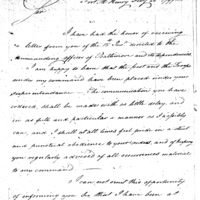 Fort McHenry May 22 1799
Sir
I have had the honor of receiving
a letter from you of the 18 Inst. directed to the
Commanding officer of Baltimore and its dependencies
I am happy to learn that the post and the Troops
under my command have been placed under your
superintendance. The communications you have
ordered, shall be made with as little delay, and
in as full and particular a manner as I possibly
can, and I shall at all times feel pride in a strict
and punctual obedience to your orders, and of keeping
you regularly advised of all occurrences material
to my command
I can not omit this opportunity
of informing you that I have been at